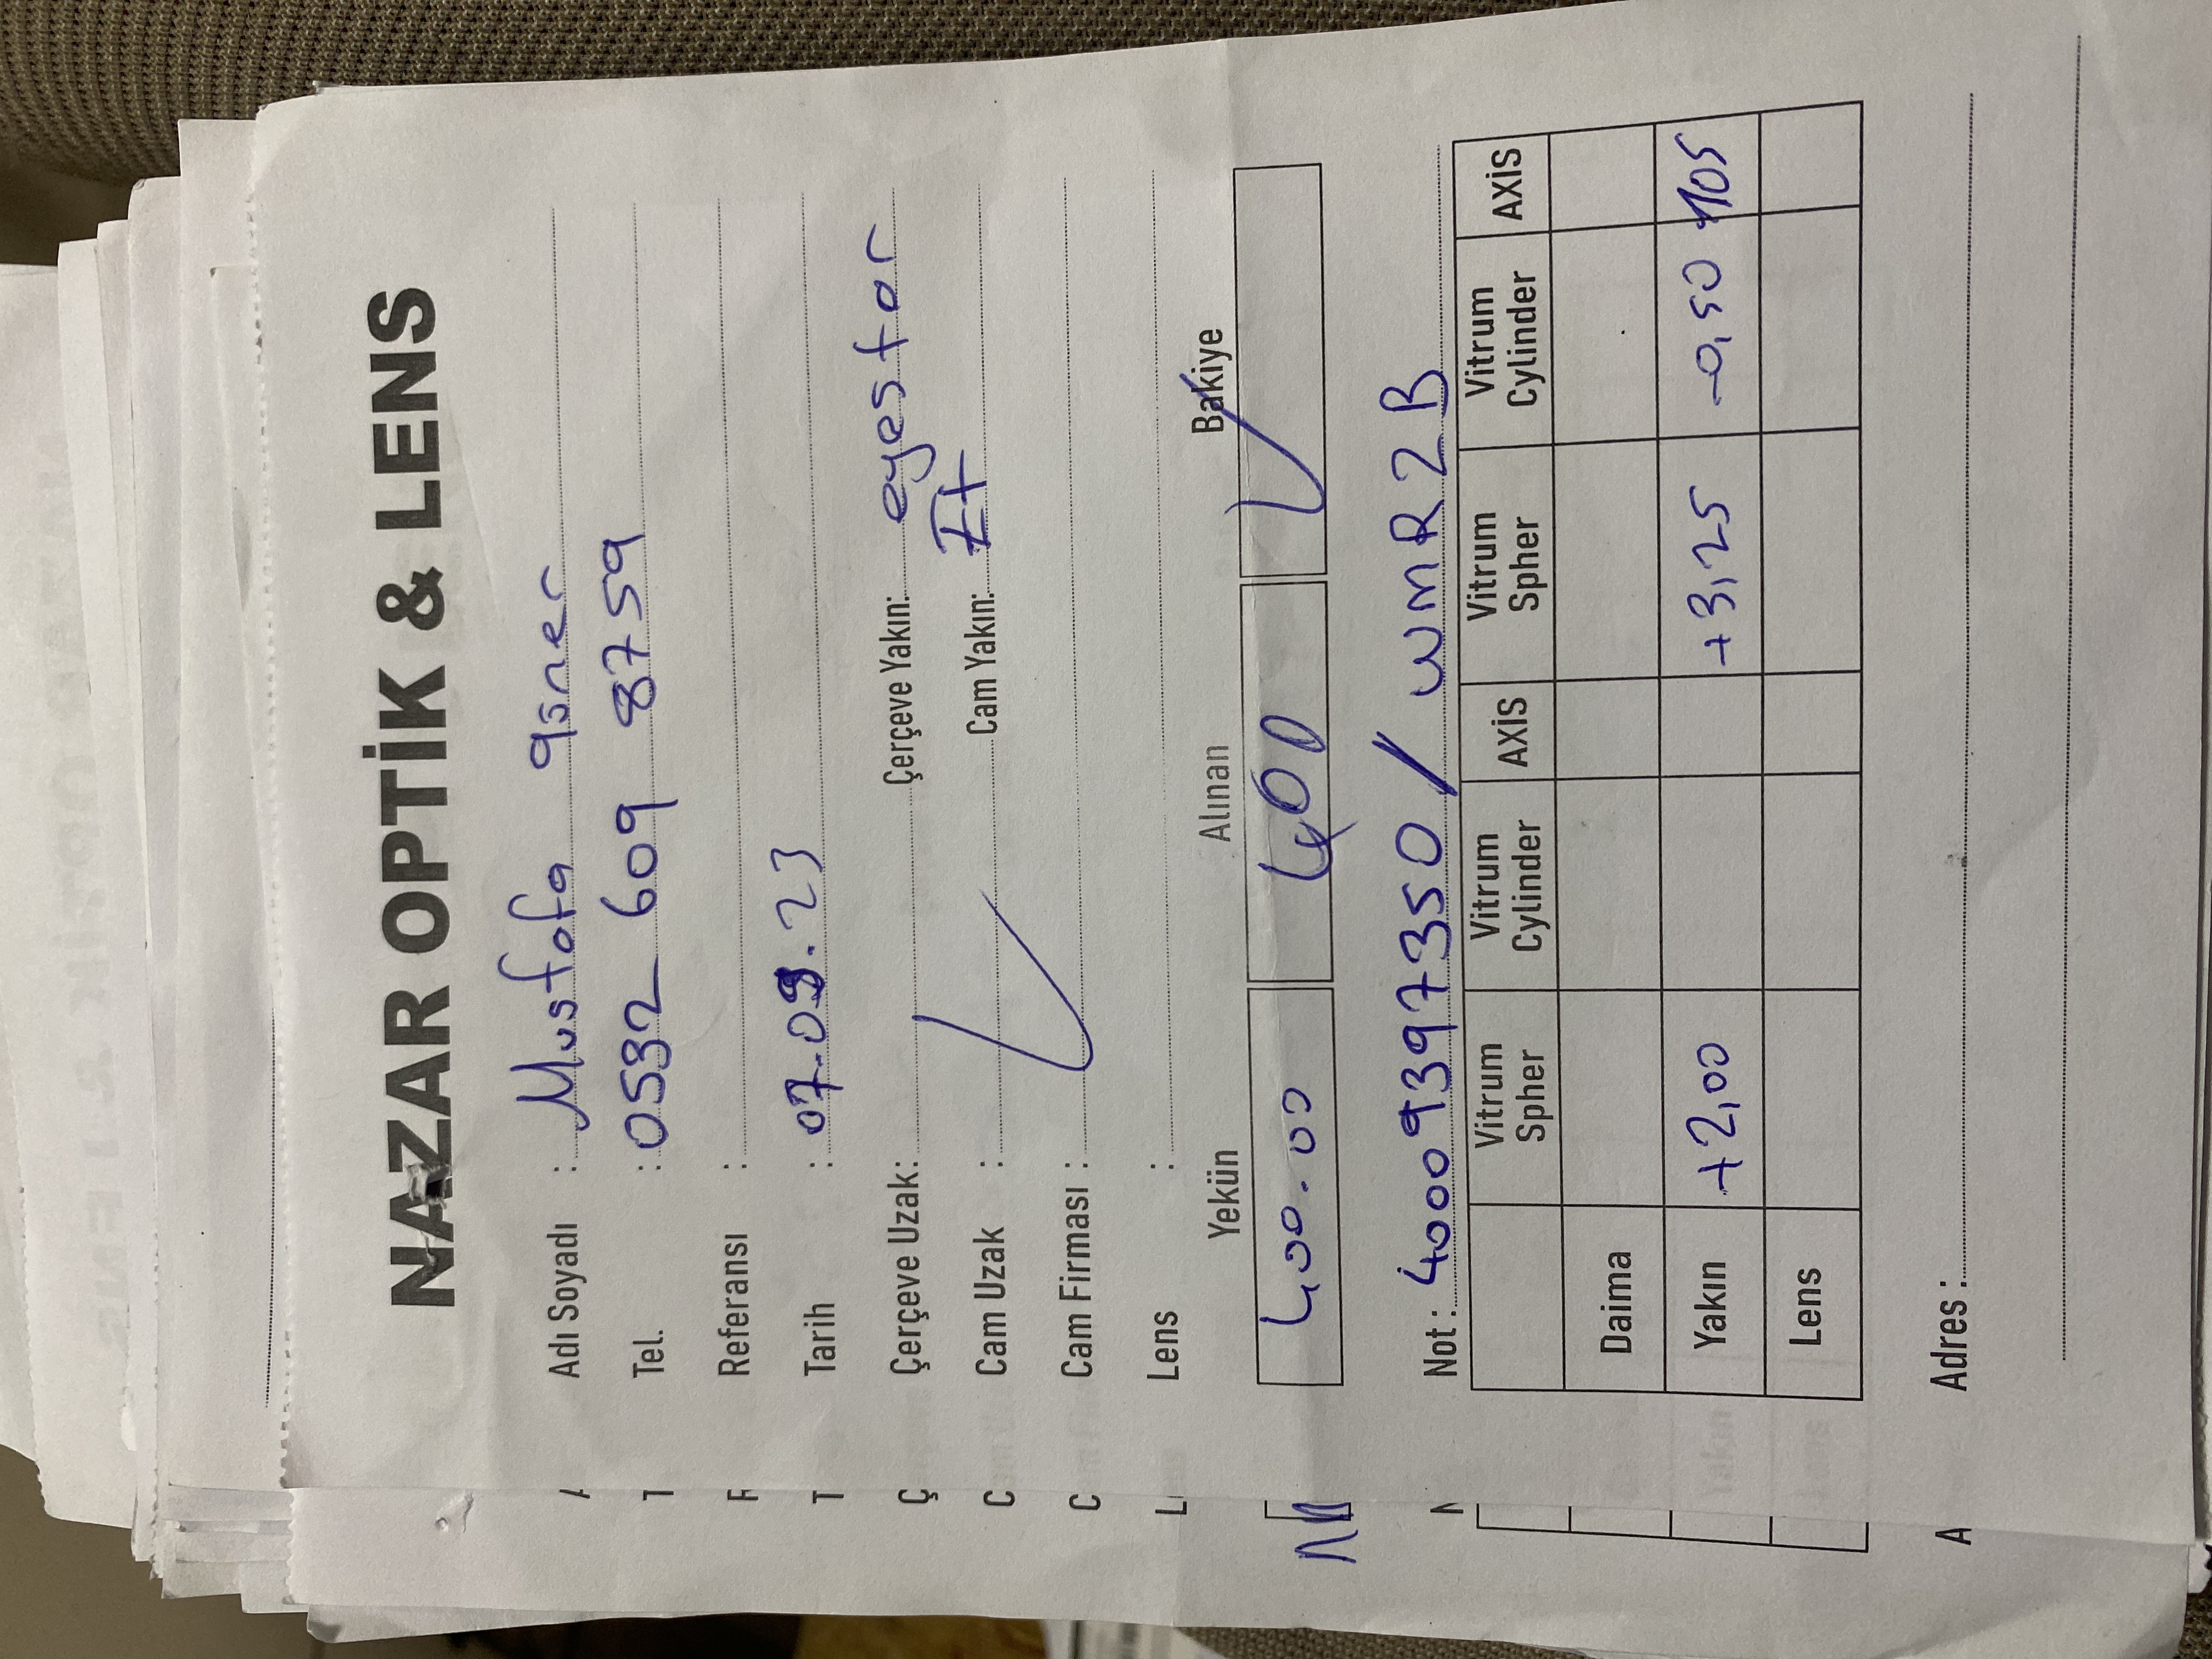 NAZAR OPTİK & LENS
Adı Soyadı : Mustafa
Tel. : 0532 609 8759
Referansı :
Tarih : 07.09.23
Çerçeve Uzak: Çerçeve Yakın: eyestar
Cam Uzak : Cam Yakın:
Cam Firması :
Lens :
Yekün Alınan Bakiye
400.00 400
Not : 40009397350 / WMR2B
Vitrum Spher Vitrum Cylinder AXİS Vitrum Spher Vitrum Cylinder AXİS
Daima
Yakın +2,00 +3,25 -0,50 105
Lens
Adres :